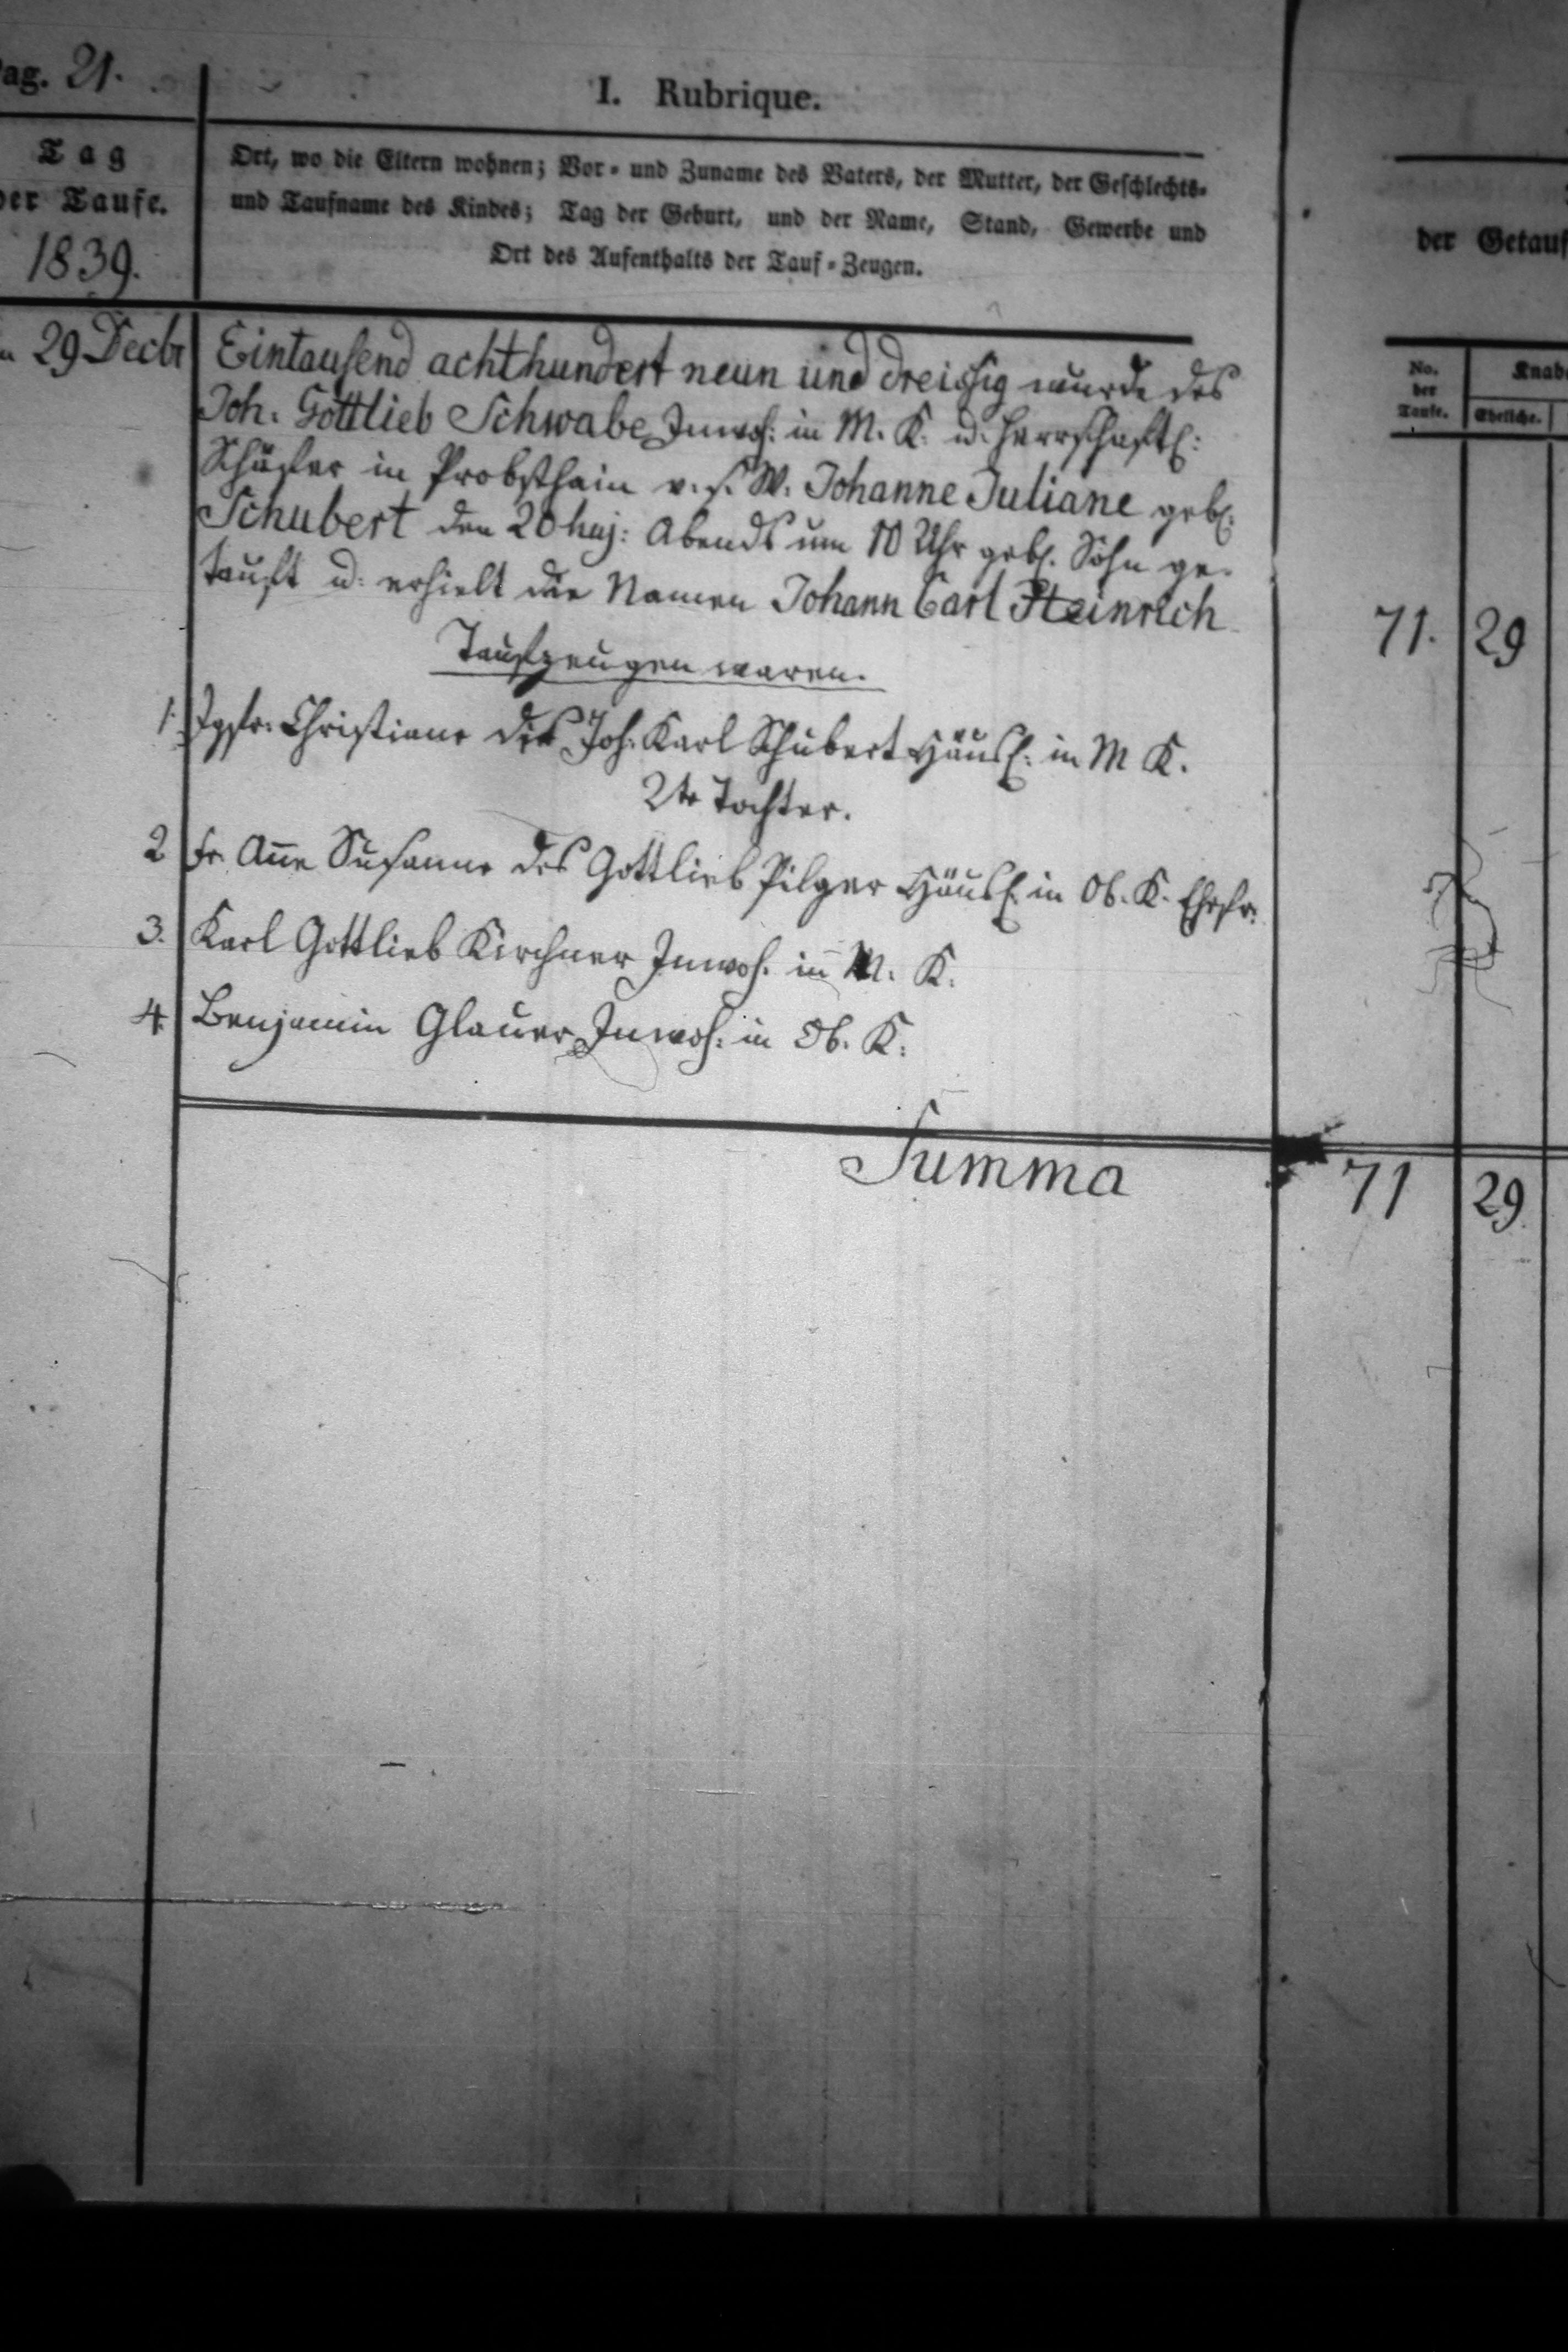 Pag. 21.
I. Rubrique.
Tag
der Taufe.
1839.
Ort, wo die Eltern wohnen; Vor- und Zuname des Vaters, der Mutter, der Geschlechts-
und Taufname des Kindes; Tag der Geburt, und der Name, Stand, Gewerbe und
Ort des Aufenthalts der Tauf-Zeugen.
der Getauf
No.
der
Taufe.
Knab
Eheliche.
29 Decbr
Eintausend achthundert neun und dreissig wurde des
Joh. Gottlieb Schwabe Inwoh: in M. K. u. herrschaftl:
Schäfer in Probsthain v. s. W. Johanne Juliane geb.
Schubert den 20 huj: Abends um 10 Uhr geb. Sohn ge-
tauft u: erhielt die Namen Johann Carl Heinrich
71. 29
Taufzeugen waren.
1. Jgfr. Christiane des Joh. Karl Schubert Häusl: in M K.
2te Tochter.
2 Fr. Anne Susanne des Gottlieb Pilger Häusl. in Ob. K. Ehefr.
3. Karl Gottlieb Kirchner Inwoh. in M. K.
4. Benjamin Glauer Inwoh: in Ob. K.
Summa 71 29